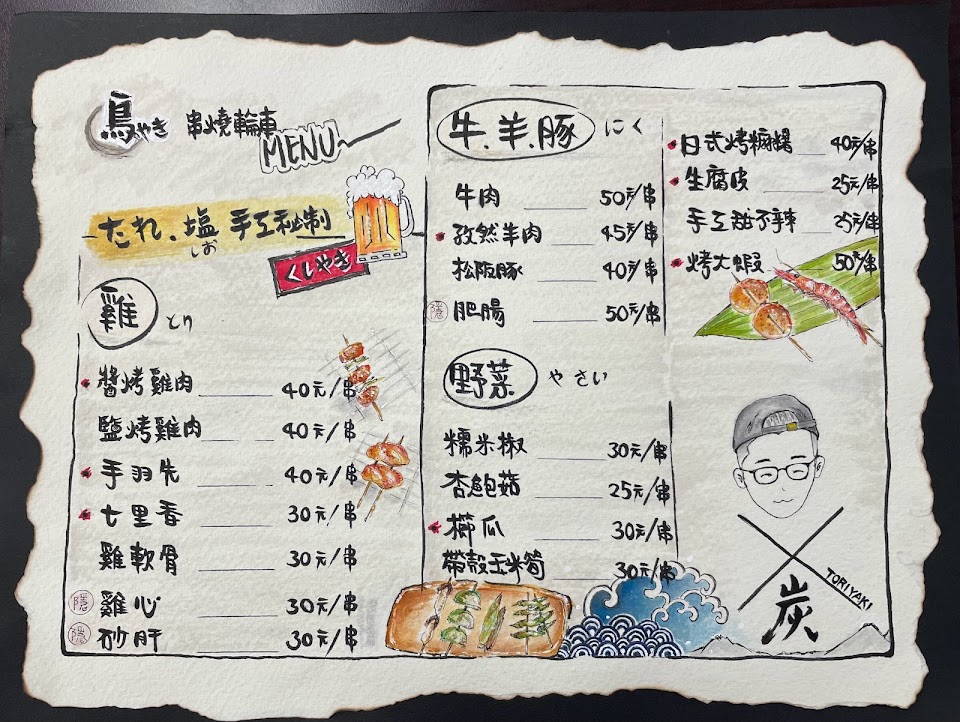 鳥やき 串燒輪車
MENU
たれ、塩 手工秘制
しお
くしやき
雞 とり
醬烤雞肉 40元/串
鹽烤雞肉 40元/串
手羽先 40元/串
七里香 30元/串
雞軟骨 30元/串
隱 雞心 30元/串
隱 砂肝 30元/串
牛、羊、豚 にく
牛肉 50元/串
孜然羊肉 45元/串
松阪豚 40元/串
隱 肥腸 50元/串
野菜 やさい
糯米椒 30元/串
杏鮑菇 25元/串
櫛瓜 30元/串
帶殼玉米筍 30元/串
日式烤麻糬 40元/串
生腐皮 25元/串
手工甜不辣 25元/串
烤大蝦 50元/串
TORIYAKI
炭